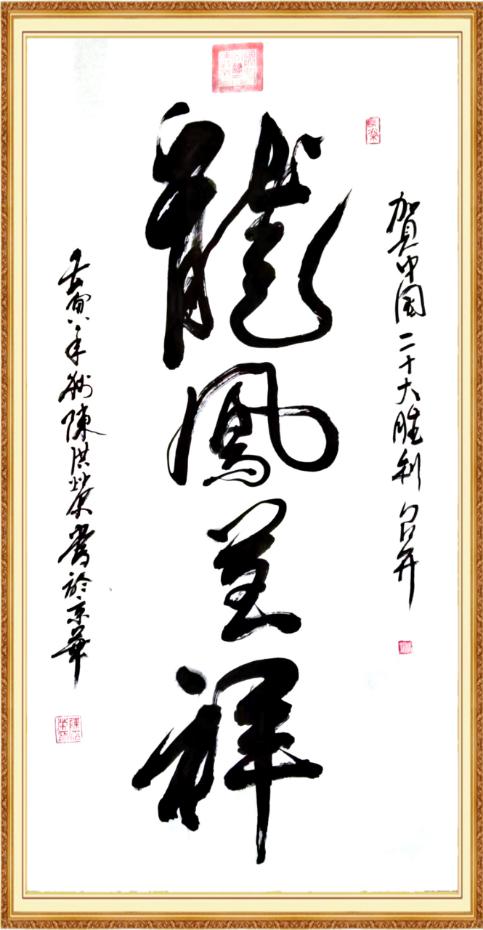 賀中国二十大胜利召开
龍鳳呈祥
壬寅年秋陳洪榮書於京華